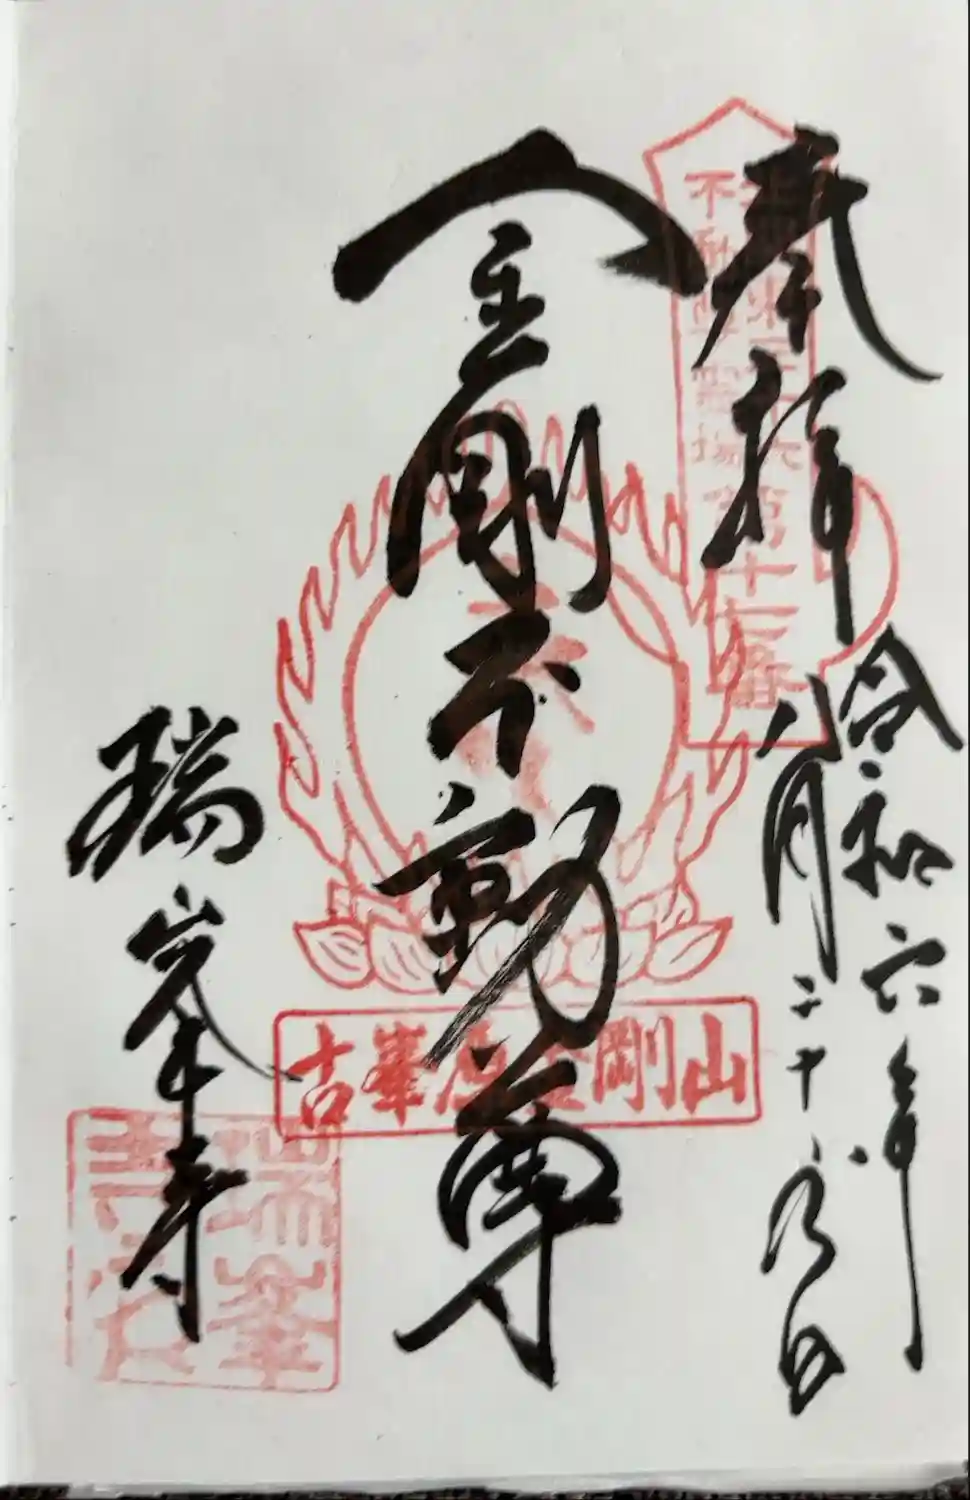 奉拝
令和六年
八月二十八日
不動尊霊場
第十七番
金剛不動尊
古峯原金剛山
瑞峯寺